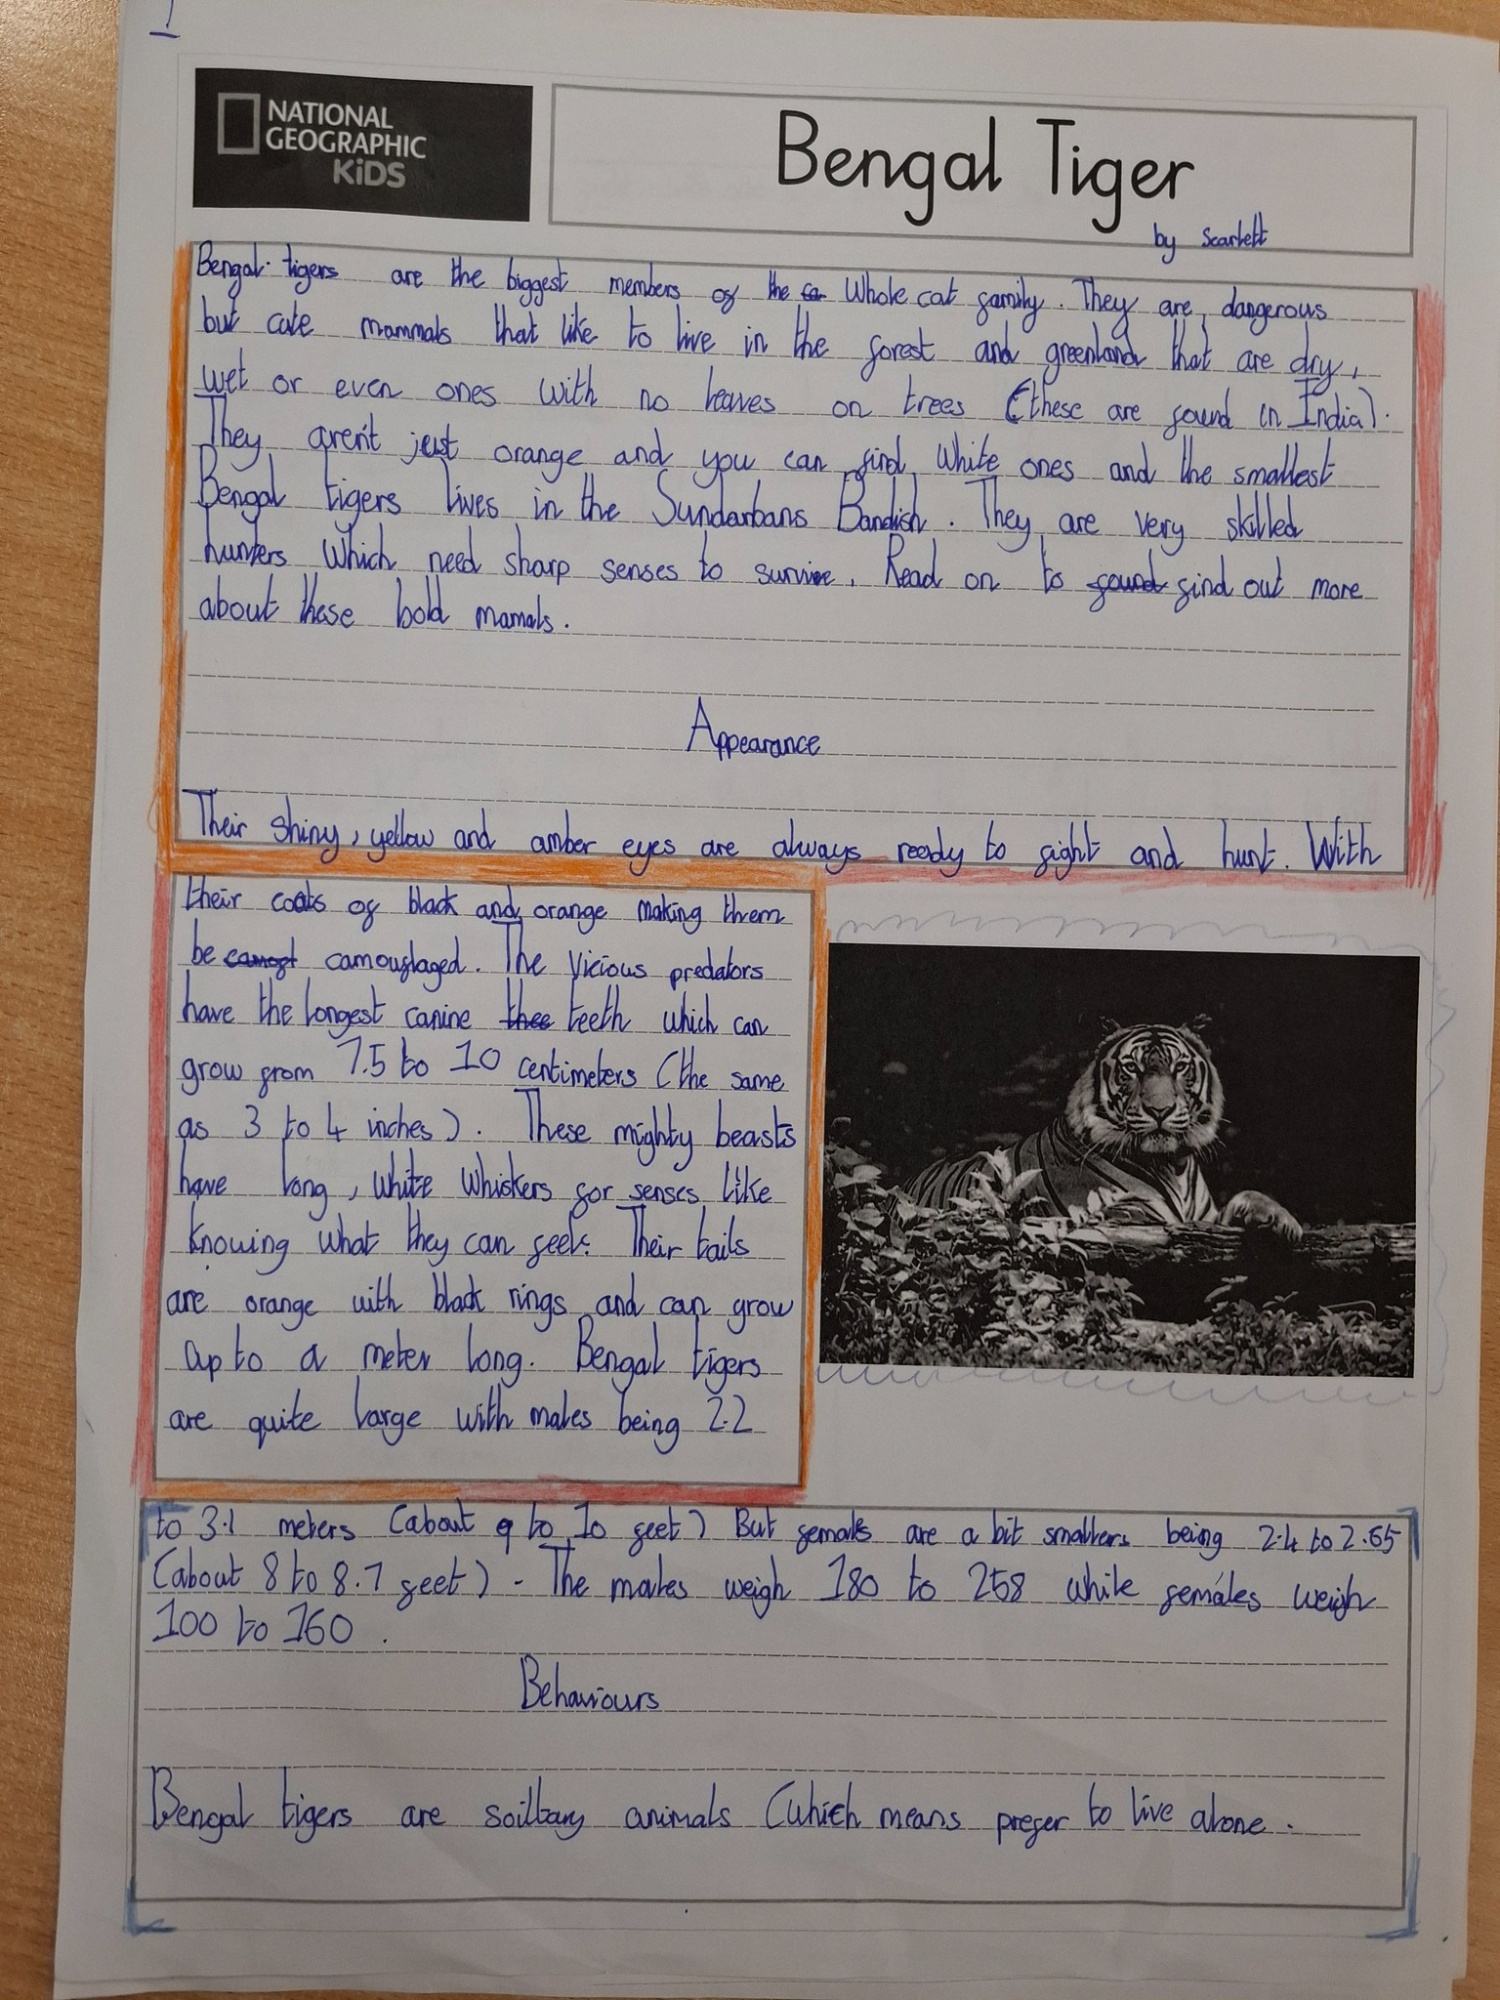 1
NATIONAL
GEOGRAPHIC
KiDS
Bengal Tiger
by Scarlett
Bengal tigers are the biggest members of the Whole cat family. They are dangerous
but cute mammals that like to live in the forest and greenland that are dry,
wet or even ones with no leaves on trees (these are found in India).
They aren't just orange and you can find White ones and the smallest
Bengal tigers lives in the Sundarbans . They are very skilled
hunters Which need sharp senses to survive. Read on to found find out more
about these bold mamals.
Appearance
Their shiny, yellow and amber eyes are always ready to fight and hunt. With
their coats of black and orange making them
be camouflaged. The vicious predators
have the longest canine teeth which can
grow from 7.5 to 10 centimeters (the same
as 3 to 4 inches). These mighty beasts
have long, white whiskers for senses like
knowing what they can feel. Their tails
are orange with black rings and can grow
up to a meter long. Bengal tigers
are quite large with males being 2.2
to 3.1 meters (about 9 to 10 feet) But females are a bit smallers being 2.4 to 2.65
(about 8 to 8.7 feet) - The males weigh 180 to 258 while females weigh
100 to 160 .
Behaviours
Bengal tigers are soiltary animals (which means prefer to live alone .